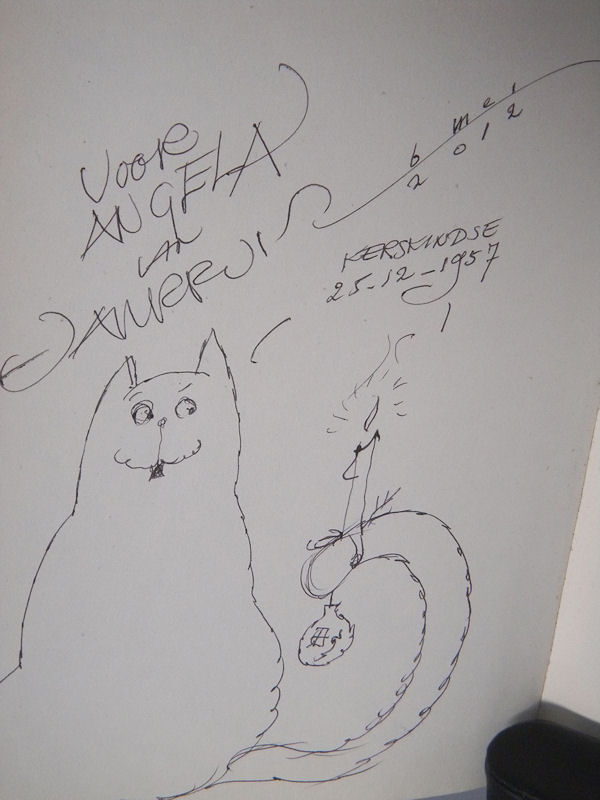 VOOR
ANGELA
VAN
JANKRUIS
6 mei
2012
KERSKINDJE
25-12-1957